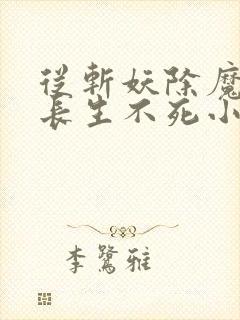 從斬妖除魔
長生不死小
李鷺雅